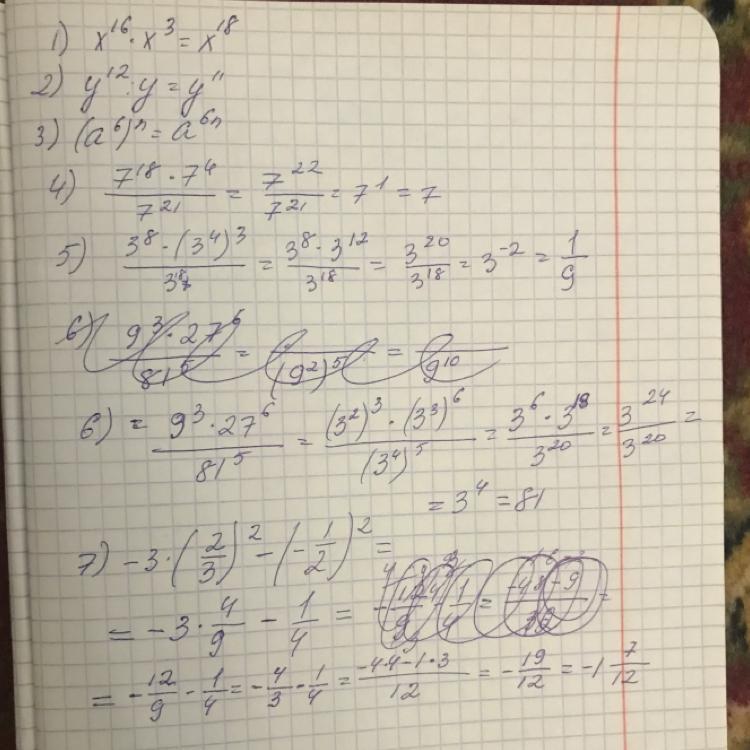 1) x¹⁶ · x³ = x¹⁸
2) y¹² : y = y¹¹
3) (a⁶)ⁿ = a⁶ⁿ
4) (7¹⁸ · 7⁴)/7²¹ = 7²²/7²¹ = 7¹ = 7
5) (3⁸ · (3⁴)³)/3¹⁸ = (3⁸ · 3¹²)/3¹⁸ = 3²⁰/3¹⁸ = 3⁻² = 1/9
6) (9³ · 27⁶)/81⁵ = /(9²)⁵ = /9¹⁰
6) = (9³ · 27⁶)/81⁵ = ((3²)³ · (3³)⁶)/(3⁴)⁵ = (3⁶ · 3¹⁸)/3²⁰ = 3²⁴/3²⁰ =
= 3⁴ = 81
7) -3 · (2/3)² - (-1/2)² =
= -3 · 4/9 - 1/4 =
= -12/9 - 1/4 = -4/3 - 1/4 = (-4·4-1·3)/12 = -19/12 = -1 7/12